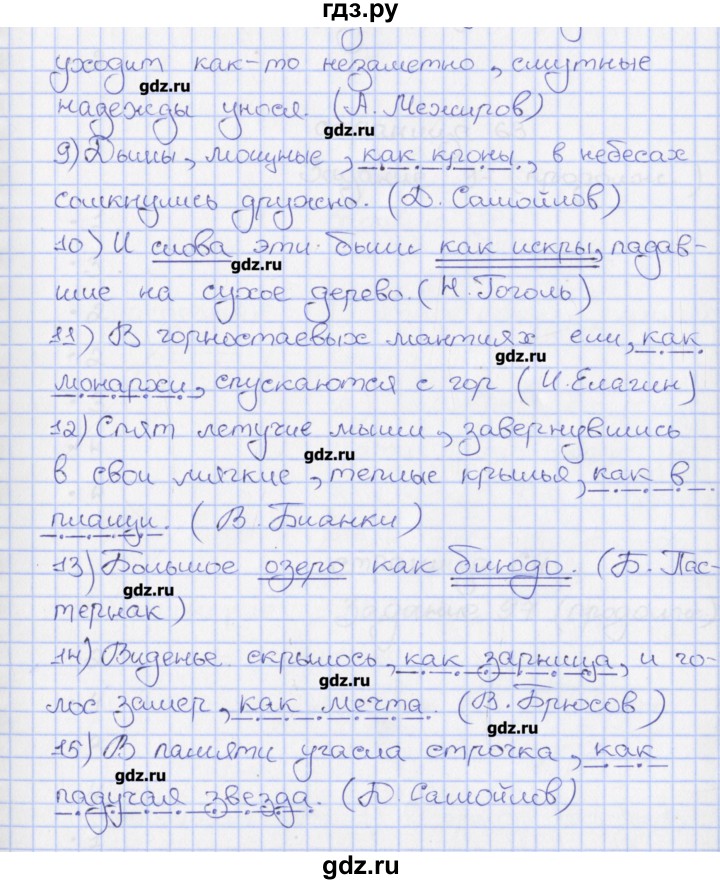 гдз.ру
уходит как-то незаметно, смутные
gdz.ru
надежды унося. (А. Межиров)
gdz.ru
9) Дымы, мощные, как кроны, в небесах
сомкнулись дружно. (Д. Самойлов)
10) И слова эти были как искры, падав-
gdz.ru
шие на сухое дерево. (Н. Гоголь)
11) В горностаевых мантиях ели, как
gdz.ru
монархи, спускаются с гор (И. Елагин)
12) Спят летучие мыши, завернувшись
gdz.ru
в свои мягкие, теплые крылья, как в
плащи. (В. Бианки)
13) Большое озеро как блюдо. (Б. Пас-
gdz.ru
тернак)
14) Виденье скрылось, как зарница, и го-
gdz.ru
лос замер, как мечта. (В. Брюсов)
gdz.ru
15) В памяти угасла строчка, как
gdz.ru
падучая звезда. (Д. Самойлов)
gdz.ru